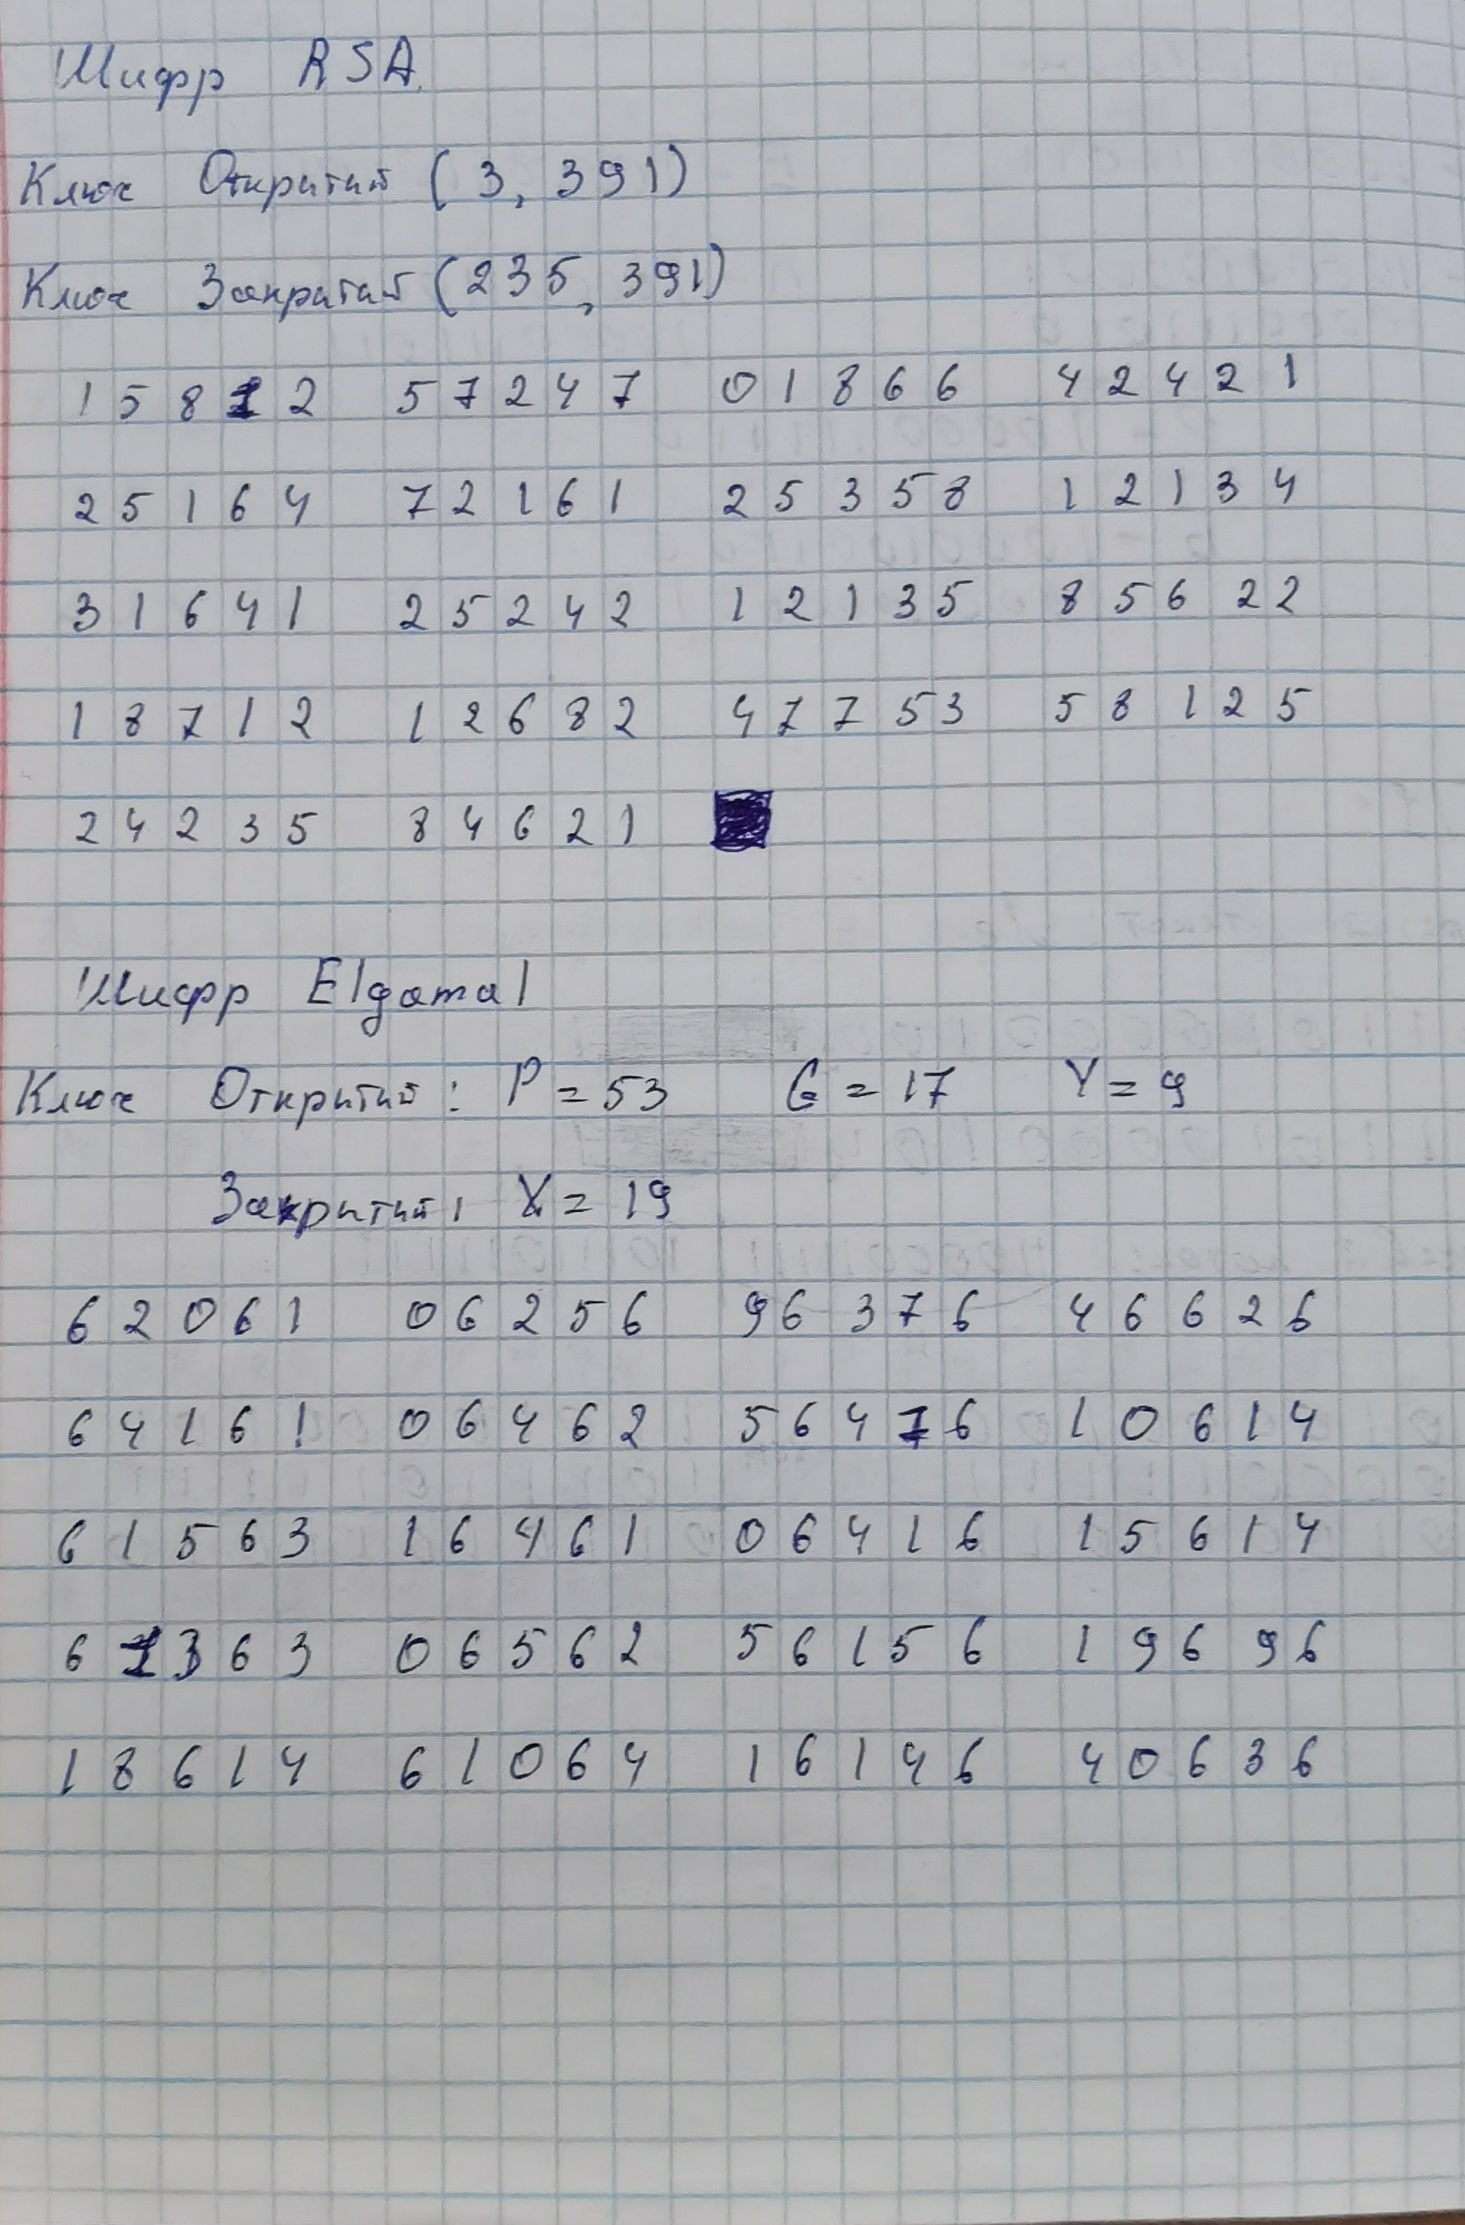 Шифр RSA
Ключ Открытый (3, 391)
Ключ Закрытый (235, 391)
15812 57247 01866 42421
25164 72161 25358 12134
31641 25242 12135 85622
18712 12682 47753 58125
24235 84621
Шифр Elgamal
Ключ Открытый: P = 53 G = 17 Y = 9
Закрытый: X = 19
62061 06256 96376 46626
64161 06462 56476 10614
61563 16461 06416 15614
61363 06562 56156 19696
18614 61064 16146 40636